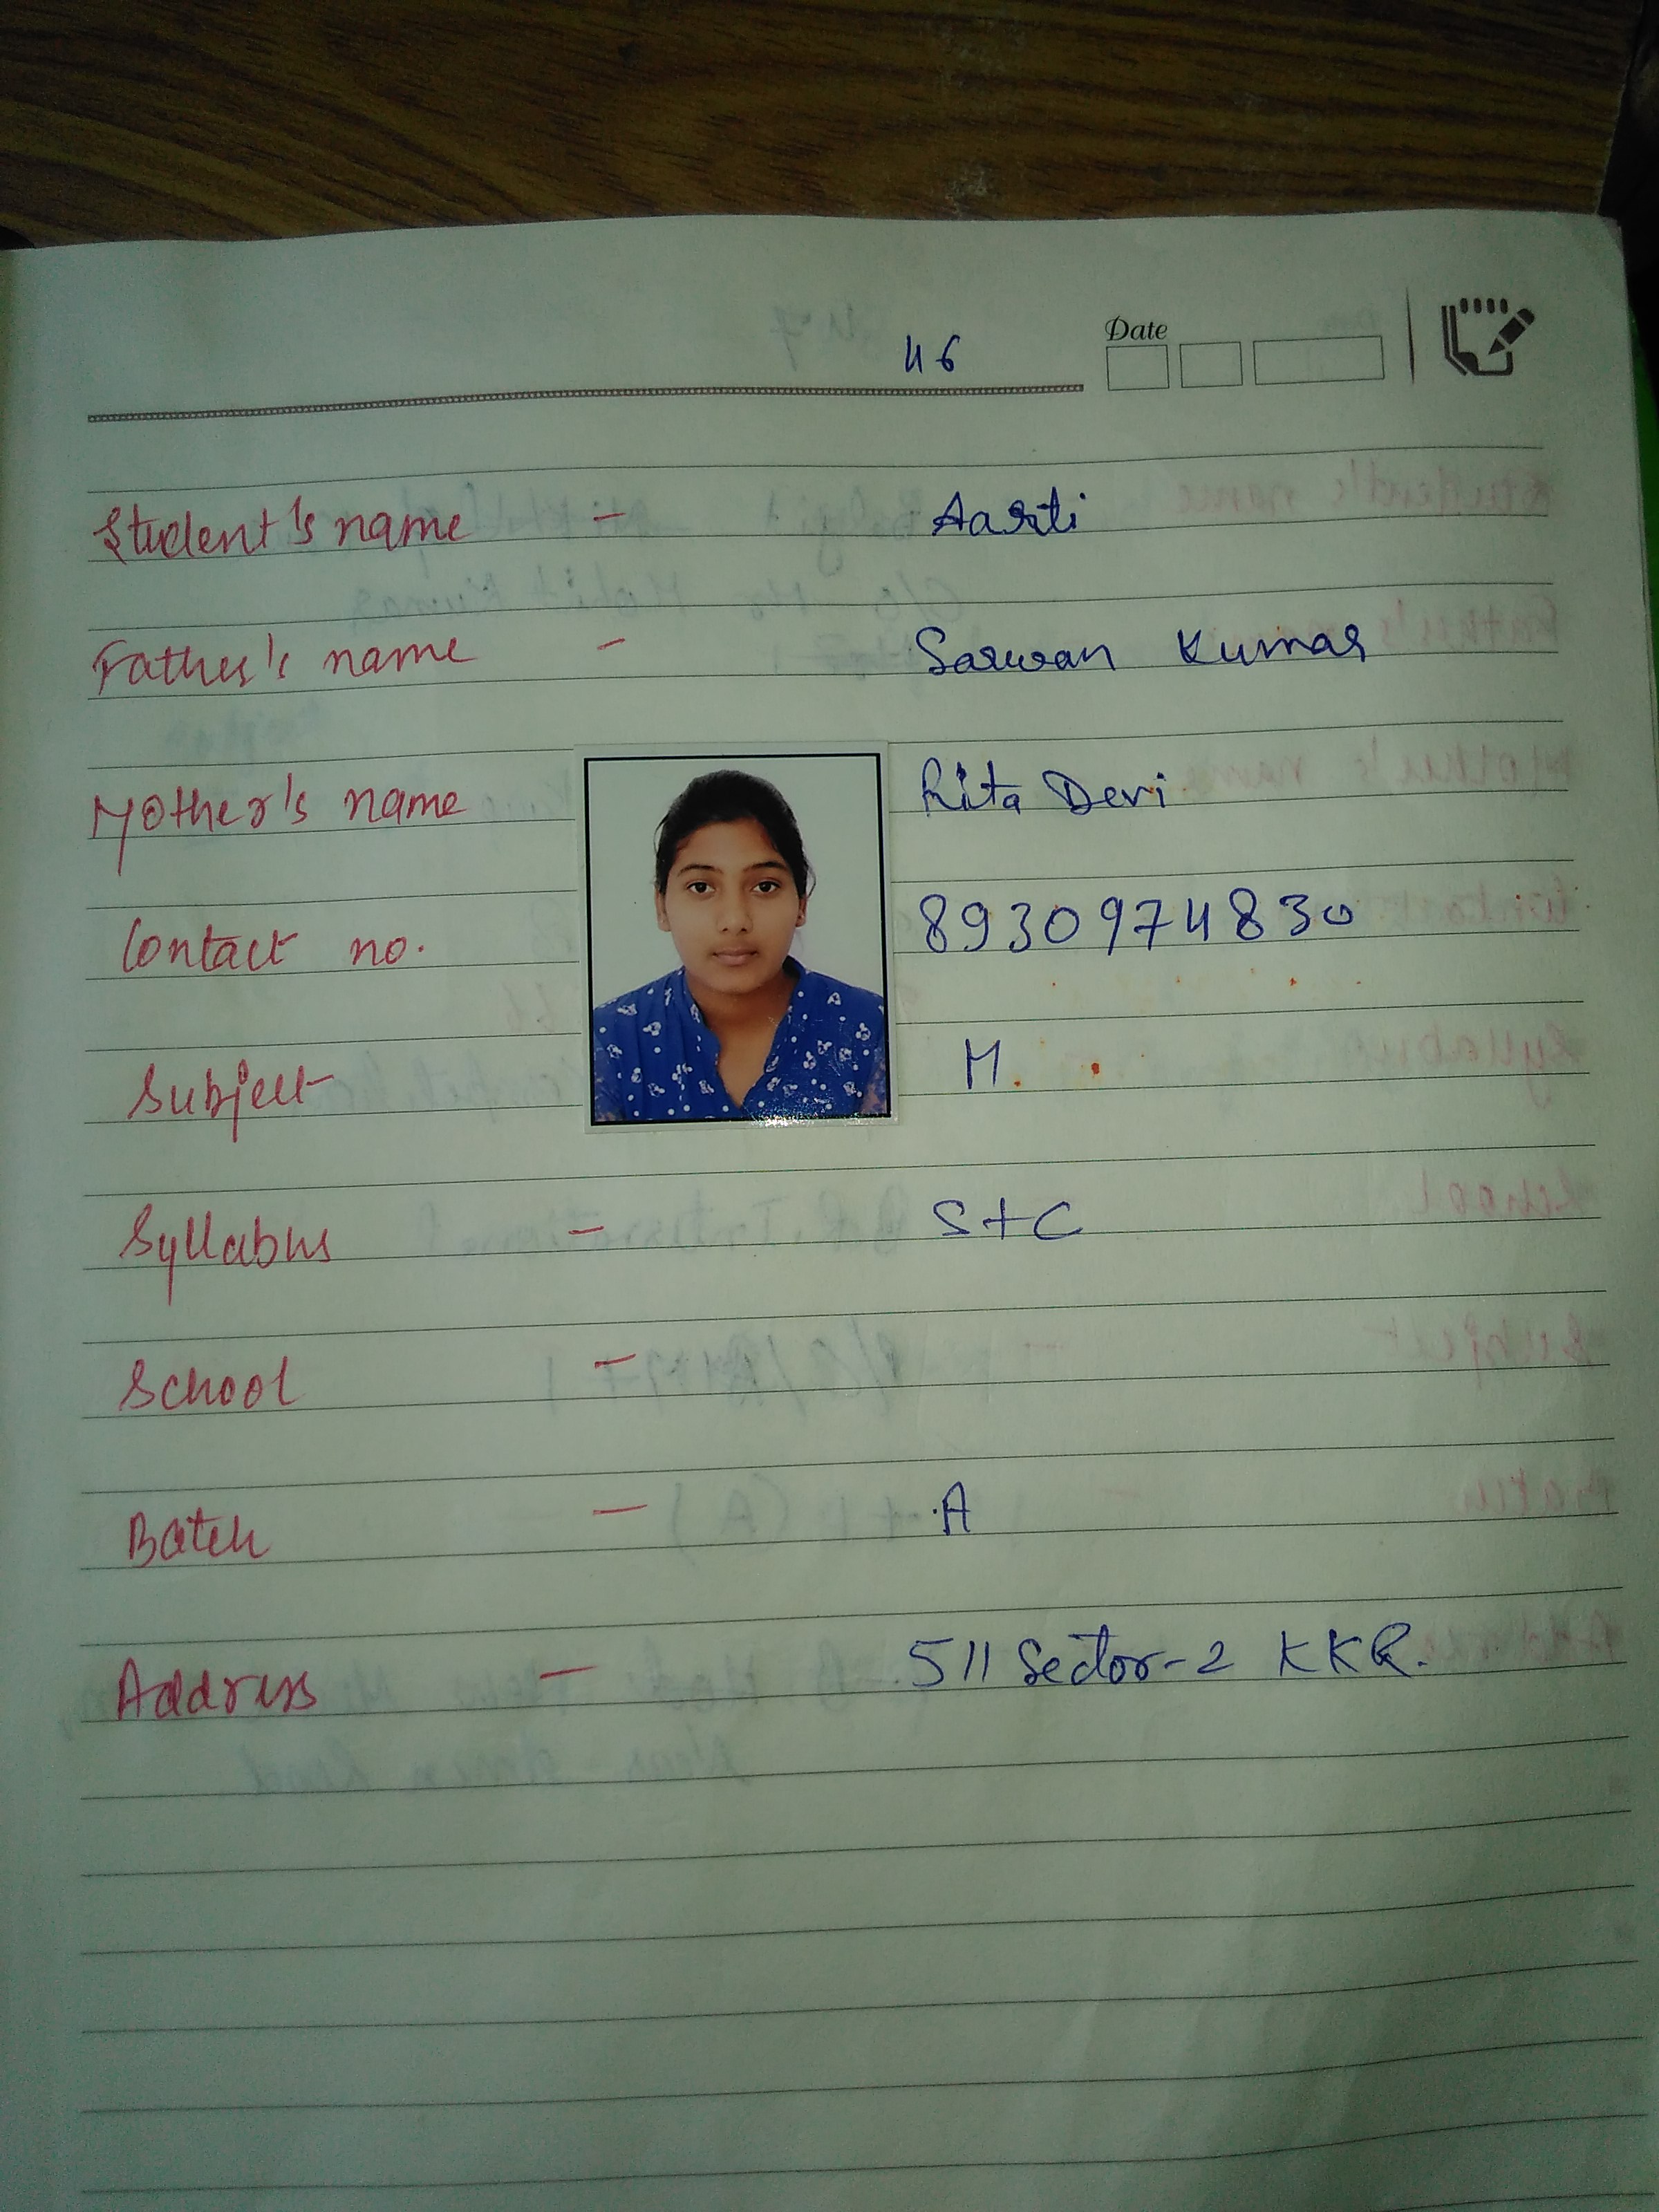 46
Date
Student's name - Aarti
Father's name - Sarwan Kumar
Mother's name Rita Devi
Contact no. 8930974830
Subject M.
Syllabus - S+C
School -
Batch - A
Address - 511 Sector-2 KKR.